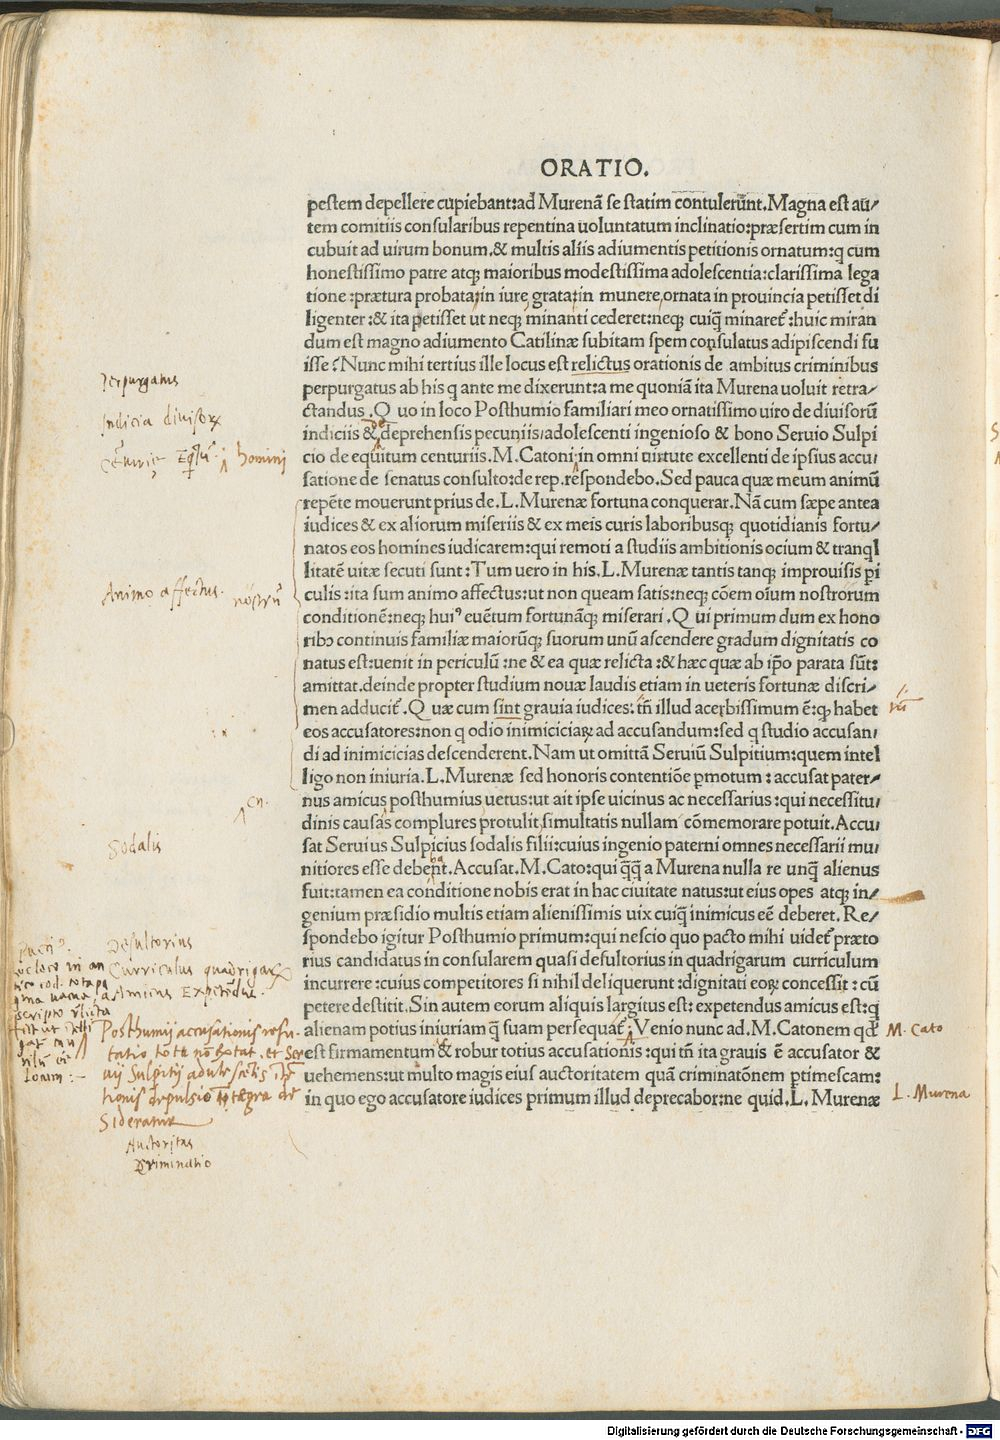 ORATIO.
pestem depellere cupiebant:ad Murenā se statim contulerūnt.Magna est aū/
tem comitiis consularibus repentina uoluntatum inclinatio:præsertim cum in
cubuit ad uirum bonum.& multis aliis adiumentis petitionis ornatum:q cum
honestissimo patre atqꝫ maioribus modestissima adolescentia:clarissima lega
tione:prætura probata:in iure grata:in munere ornata in prouincia petisset di
ligenter:& ita petisset ut neqꝫ minanti cederet:neqꝫ cuiq̄ minaret̄:huic miran
dum est magno adiumento Catilinæ subitam spem consulatus adipiscendi fu
isse? Nunc mihi tertius ille locus est relictus orationis de ambitus criminibus
perpurgatus ab his q ante me dixerunt:a me quoniā ita Murena uoluit retra/
ctandus.Q uo in loco Posthumio familiari meo ornatissimo uiro de diuisorū
indiciis & de deprehensis pecuniis/adolescenti ingenioso & bono Seruio Sulpi
cio de equitum centuriis.M.Catoni in omni uirtute excellenti de ipsius accu/
satione de senatus consulto:de rep.respondebo.Sed pauca quæ meum animū
repēte mouerunt prius de.L.Murenæ fortuna conquerar.Nā cum sæpe antea
iudices & ex aliorum miseriis & ex meis curis laboribusqꝫ quotidianis fortu/
natos eos homines iudicarem:qui remoti a studiis ambitionis ocium & tranql
litatē uitæ secuti sunt:Tum uero in his.L.Murenæ tantis tanqꝫ improuisis pi
culis:ita sum animo affectus:ut non queam satis:neqꝫ cōem oīum nostrorum
conditionē:neqꝫ huiꝰ euētum fortunāqꝫ miserari.Q ui primum dum ex hono
ribꝫ continuis familiæ maiorūqꝫ suorum unū ascendere gradum dignitatis co
natus est:uenit in periculū:ne & ea quæ relicta:& hæc quæ ab ipso parata sūt:
amittat.deinde propter studium nouæ laudis etiam in ueteris fortunæ discri/
men adducit̄.Q uæ cum sint grauia iudices:tn̄ illud acerbissimum ē:qꝫ habet
eos accusatores:non q odio inimiciciaꝝ ad accusandum:sed q studio accusan/
di ad inimicicias descenderent.Nam ut omittā Seruiū Sulpitium:quem intel
ligo non iniuria.L.Murenæ sed honoris contentiōe pmotum:accusat pater/
nus amicus posthumius uetus:ut ait ipse uicinus ac necessarius:qui necessitu/
dinis causas complures protulit/simultatis nullam cōmemorare potuit.Accu/
sat Seruius Sulpicius sodalis filii:cuius ingenio paterni omnes necessarii mu/
nitiores esse debent.Accusat.M.Cato:qui q̄q̄ a Murena nulla re unq̄ alienus
fuit:tamen ea conditione nobis erat in hac ciuitate natus:ut eius opes atqꝫ in/
genium præsidio multis etiam alienissimis uix cuiq̄ inimicus eē deberet.Re/
spondebo igitur Posthumio primum:qui nescio quo pacto mihi uidet̄ præto
rius candidatus in consularem quasi desultorius in quadrigarum curriculum
incurrere:cuius competitores si nihil deliquerunt:dignitati eoꝝ concessit:cū
petere destitit.Sin autem eorum aliquis largitus est:expetendus amicus est:q
alienam potius iniuriam q̄ suam persequat̄.Venio nunc ad.M.Catonem qd̄
est firmamentum & robur totius accusationis:qui tn̄ ita grauis ē accusator &
uehemens:ut multo magis eius auctoritatem quā criminatōnem ptimescam:
in quo ego accusatore iudices primum illud deprecabor:ne quid.L.Murenæ
perpurgatus
Indicia diuisoꝝ
homini
Animo affectus.
nostrū
cn.
Sodalis
Desultorius
Curriculus quadrigaꝝ
Amicus Expetēdus.
Posthumij accusationis refu-
tatio
Sideratur
Auctoritas
Criminatio
M. Cato
L. Murena
Digitalisierung gefördert durch die Deutsche Forschungsgemeinschaft - DFG